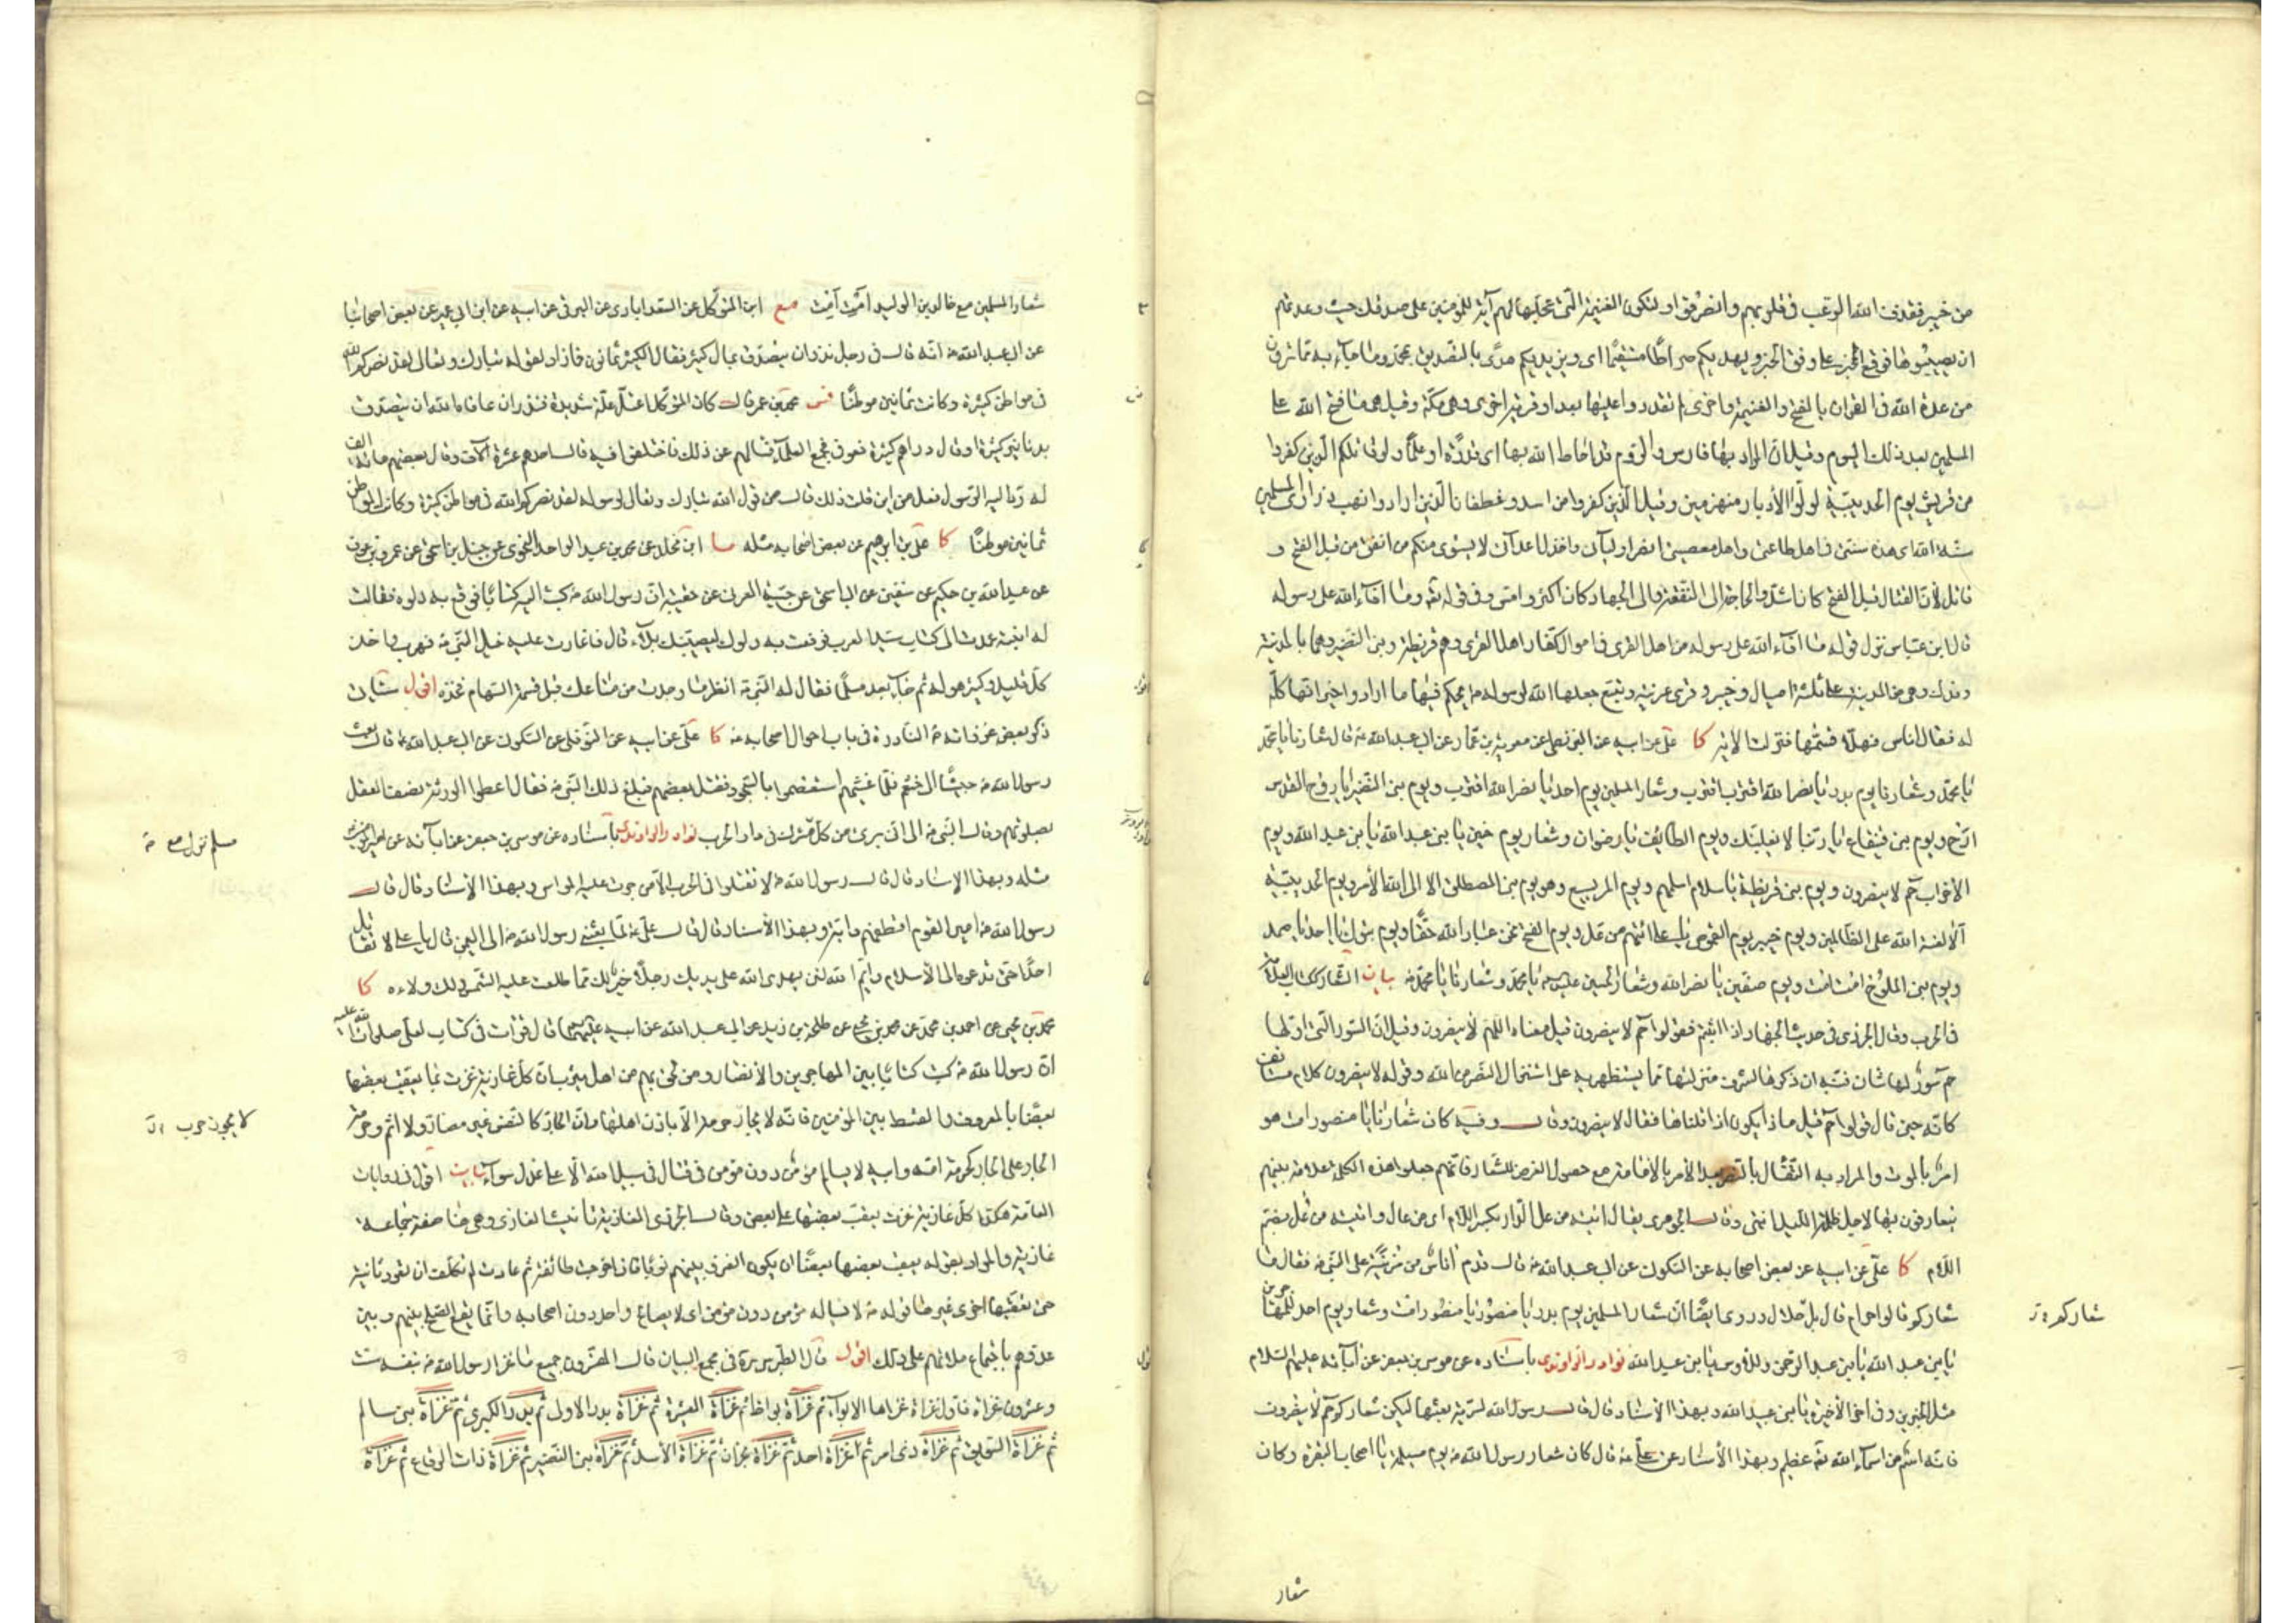 من خيبر فقذف الله الرعب في قلوبهم وانصرفوا ولتكون الغنيمة التي عجلها لهم آية للمؤمنين على صدقك حيث وعدتهم
ان يصيبوها فوقع المخبر على وفق الخبر ويهديكم صراطا مستقيما اى ويزيدكم هدى بالتصديق بمحمد وما جاء به مما ترون
من عدة الله في القران بالفتح والغنيمة واخرى لم تقدروا عليها بعد او قرية اخرى وهى مكة وقيل هى ما فتح الله على
المسلمين بعد ذلك اليوم وقيل ان المراد بها فارس والروم قد احاط الله بها اى قدرة او علما ولو قاتلكم الذين كفروا
من قريش يوم الحديبية لولوا الأدبار منهزمين وقيل الذين كفروا من اسد وغطفان الذين ارادوا نهب ذرارى المسلمين
سنة الله اى هذه سنتى في اهل طاعتى واهل معصيتى انصر اوليائى واخذل اعدائى لا يستوى منكم من انفق من قبل الفتح و
قاتل لأن القتال قبل الفتح كان اشد والحاجة الى النفقة والى الجهاد كان اكثر وامس وفي قوله تعه وما افاء الله على رسوله
قال ابن عباس نزل قوله ما افاء الله على رسوله من اهل القرى في اموال كفار اهل القرى وهم قريظة وبنى النضير وهما بالمدينة
وفدك وهى من المدينة على ثلثة اميال وخيبر وقرى عرينة وينبع جعلها الله لرسوله ص يحكم فيها ما اراد واخبر انها كلها
له فقال اناس فهلا قسمها فنزلت الآية كا على عن ابيه عن البزنطى عن معوية بن عمار عن ابى عبد الله ع قال شعارنا يا محمد
يا محمد وشعارنا يوم بدر يا نصر الله اقترب اقترب وشعار المسلمين يوم احد يا نصر الله اقترب ويوم بنى النضير يا روح القدس
ارح ويوم بنى قينقاع يا ربنا لا يغلبنك ويوم الطائف يا رضوان وشعار يوم حنين يا بنى عبد الله يا بنى عبد الله ويوم
الأحزاب حم لا يبصرون ويوم بنى قريظة يا سلام اسلمهم ويوم المريسيع وهو يوم بنى المصطلق الا الى الله الأمر ويوم الحديبية
ألا لعنة الله على الظالمين ويوم خيبر يوم القموص يا على ائتهم من عل ويوم الفتح نحن عباد الله حقا ويوم تبوك يا احد يا صمد
ويوم بنى الملوح امت امت ويوم صفين يا نصر الله وشعار الحسين عليه يا محمد وشعارنا يا محمد بيان الشعار ككتاب العلامة
في الحرب وقال الجزرى في حديث الجهاد اذا ابيتم فقولوا حم لا يبصرون قيل معناه اللهم لا يبصرون وقيل ان السور التى اولها
حم سور لها شان فنبه ان ذكرها لشرف منزلتها مما يستظهر به على استنزال النصر من الله وقوله لا يبصرون كلام مستانف
كانه حين قال قولوا حم قيل ماذا يكون اذا قلناها فقال لا يبصرون وقال وفيه كان شعارنا يا منصور امت هو
امر بالموت والمراد به التفأل بالنصر بعد الأمر بالأماتة مع حصول الغرض للشعار فانهم جعلوا هذه الكلمة علامة بينهم
يتعارفون بها لاجل ظلمة الليل انتهى وقال الجوهرى يقال اتيته من عل الدار بكسر اللام اى من عال واتيته من عل بضم
اللام كا على عن ابيه عن بعض اصحابه عن السكونى عن ابى عبد الله ع قال قدم اناس من مزينة على النبى ص فقال ما
شعاركم قالوا حرام قال بل حلال وروى ايضا ان شعار المسلمين يوم بدر يا منصور يا منصور امت وشعار يوم احد للمهاجرين
يا بنى عبد الله يا بنى عبد الرحمن وللأوس يا بنى عبد الله نوادر الراوندى باسناده عن موسى بن جعفر عن آبائه عليهم السلام
مثل الخبرين وفي آخر الأخيرة يا بنى عبيد الله وبهذا الأسناد قال قال رسول الله لسرية بعثها ليكن شعاركم حم لا يبصرون
فانه اسم من اسماء الله تعه عظيم وبهذا الأسناد عن على ع قال كان شعار رسول الله ص يوم مسيلمة يا اصحاب البقرة وكان
شعاركم
شعار
شعار المسلمين مع خالد بن الوليد امت امت مع ابن المتوكل عن السعدابادى عن البرقى عن ابيه عن ابن ابى عمير عن بعض اصحابنا
عن ابى عبد الله ع انه قال في رجل نذر ان يتصدق بمال كثير فقال الكثير ثمانون فما زاد لقوله تبارك وتعالى لقد نصركم الله
في مواطن كثيرة وكانت ثمانين موطنا فس محمد بن عمر قال كان المتوكل اعتل علة شديدة فنذر ان عافاه الله ان يتصدق
بدنانير كثيرة او قال دراهم كثيرة فعوفى فجمع العلماء فسالهم عن ذلك فاختلفوا فيه قال احدهم عشرة آلاف وقال بعضهم مائة الف
ثمانين موطنا كا على بن ابرهيم عن بعض اصحابه مثله ما ابن مخلد عن محمد بن عبد الواحد النحوى عن حنبل بن اسحق عن عمرو بن عون
عن عبد الله بن حكيم عن سفين عن ابى اسحق عن حسنة العرنى عن حفينة ان رسول الله ص كتب اليه كتابا فرقع به دلوه فقالت
له ابنته عمدت الى كتاب سيد العرب فرقعت به دلوك ليصيبنك بلاء قال فاغارت عليه خيل النبى ص فهرب واخذ
كل قليل وكثير هو له ثم جاء بعد مسلما فقال له النبى ص انظر ما وجدت من متاعك قبل قسمة السهام فخذه اقول سياتى
ذكر بعض غزواته ص النادرة في باب احوال اصحابه ص كا على عن ابيه عن النوفلى عن السكونى عن ابى عبد الله ع قال بعث
رسول الله ص جيشا الى خثعم فلما غشيهم استعصموا بالسجود فقتل بعضهم فبلغ ذلك النبى ص فقال اعطوا الورثة نصف العقل
بصلوتهم وقال النبى ص الا انى برئ من كل مسلم ترك في دار الحرب نوادر الراوندى باسناده عن موسى بن جعفر عن آبائه عن
مثله وبهذا الإسناد قال قال رسول الله ص لا تقتلوا في الحرب الا من جرت عليه المواسى وبهذا الأسناد قال قال
رسول الله ص امير القوم اقطفهم دابة وبهذا الأسناد قال قال على ع لما بعثنى رسول الله ص الى اليمن قال يا على لا تقاتل
احدا حتى تدعوه الى الأسلام وايم الله لئن يهدى الله على يديك رجلا خير لك مما طلعت عليه الشمس ولك ولاءه كا
محمد بن يحيى عن احمد بن محمد عن محمد بن يحيى عن طلحة بن زيد عن ابى عبد الله عن ابيه عليهما قال قرات في كتاب لعلى صلوات الله عليه
ان رسول الله ص كتب كتابا بين المهاجرين والأنصار ومن لحق بهم من اهل يثرب ان كل غازية غزت بما يعقب بعضها
بعضا بالمعروف والقسط بين المؤمنين فانه لا يجار حرمة الا باذن اهلها وان الجار كالنفس غير مضار ولا اثم وحرمة
الجار على الجار كحرمة امه وابيه لا يسالم مؤمن دون مؤمن في قتال في سبيل الله الا على عدل سواء بيان اقول في روايات
العامة هكذا كل غازية غزت يعقب بعضها على بعض وقال الجزرى الغازية تانيث الغازى وهى هنا صفة جماعة
غازية والمراد بقوله يعقب بعضها بعضا ان يكون الغزو بينهم نوبا فاذا خرجت طائفة ثم عادت لم تكلف ان تعود ثانية
حتى تعقبها اخرى غيرها قوله ص لا يسالم مؤمن دون مؤمن اى لا يصالح واحد دون اصحابه وانما يقع الصلح بينهم وبين
عدوهم باجتماع ملائهم على ذلك اقول قال الطبرسى ره في مجمع البيان قال المفسرون جميع ما غزا رسول الله ص بنفسه ست
وعشرون غزاة فاول غزاة غزاها الابواء ثم غزاة بواط ثم غزاة العشيرة ثم غزاة بدر الاولى ثم بدر الكبرى ثم غزاة بنى سالم
ثم غزاة السويق ثم غزاة ذى امر ثم غزاة احد ثم غزاة نجران ثم غزاة الأسد ثم غزاة بنى النضير ثم غزاة ذات الرقاع ثم غزاة
مسلم نزل مع
لا يجوز حرب